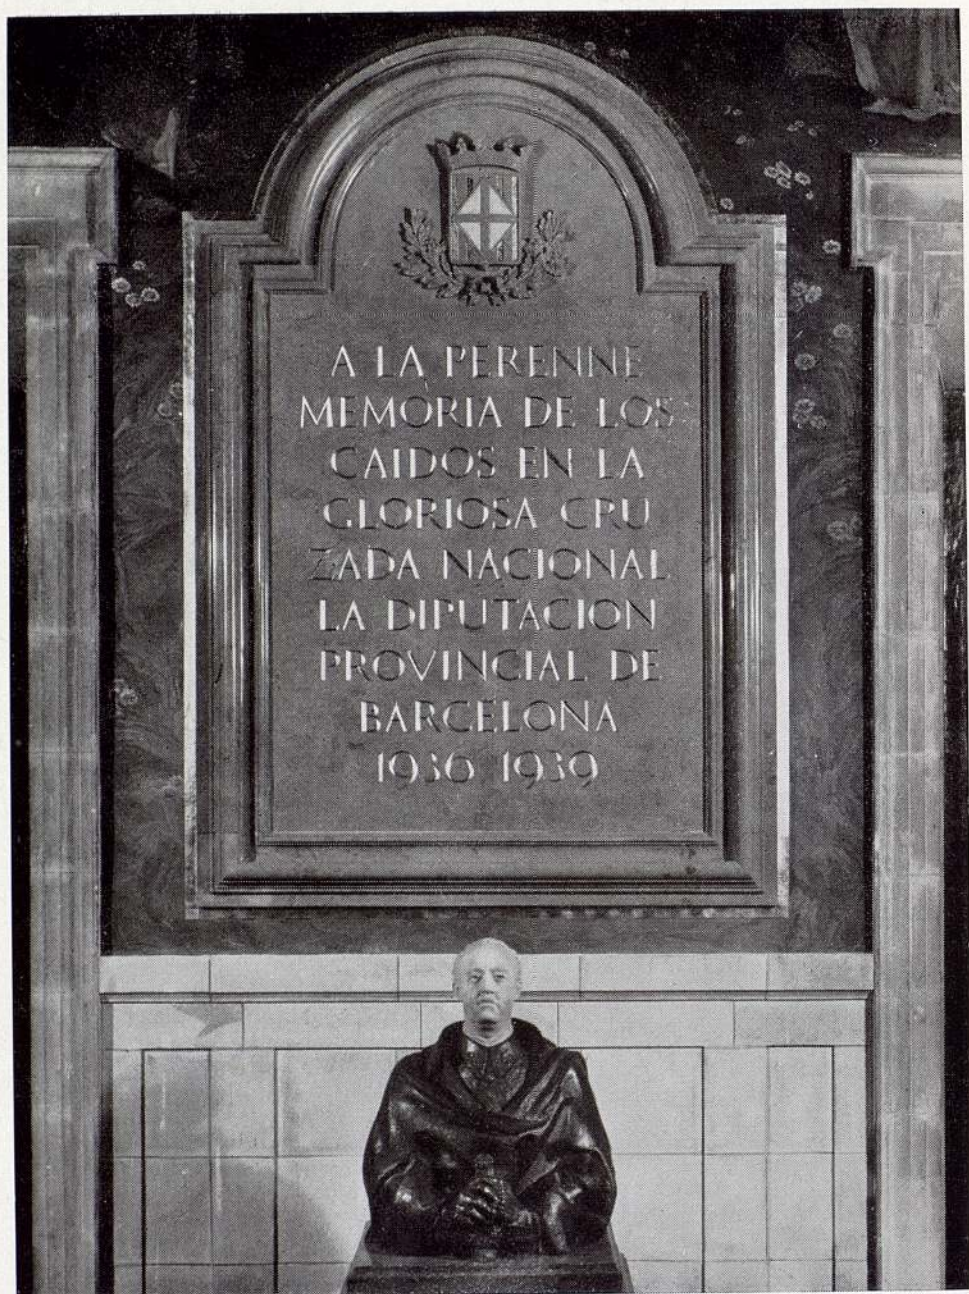 A LA PERENNE
MEMORIA DE LOS
CAIDOS EN LA
GLORIOSA CRU
ZADA NACIONAL
LA DIPUTACION
PROVINCIAL DE
BARCELONA
1936 1939